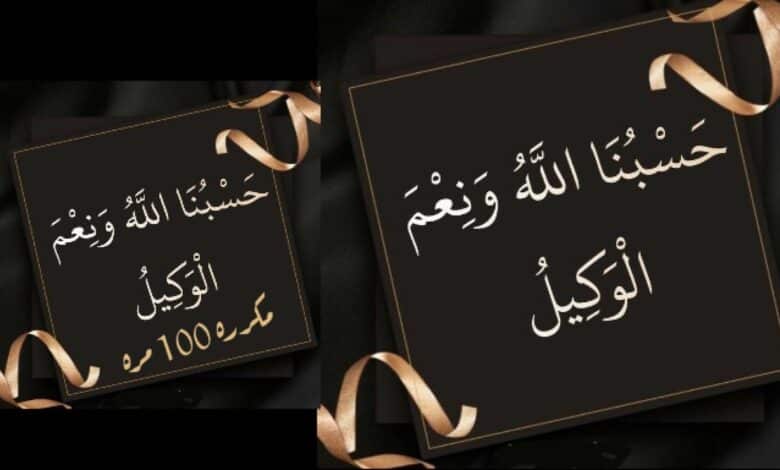 حَسْبُنَا اللَّهُ وَنِعْمَ
الْوَكِيلُ
حَسْبُنَا اللَّهُ وَنِعْمَ
الْوَكِيلُ
مكرره 100 مره